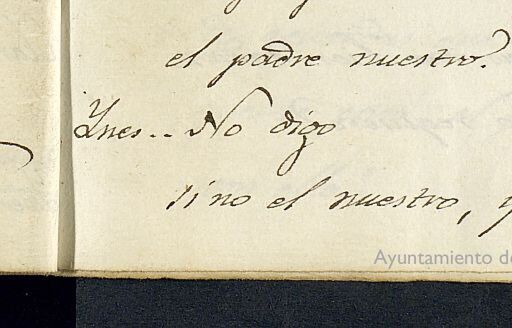 el padre nuestro.
Ynes.. No digo
sino el nuestro, y
Ayuntamiento de